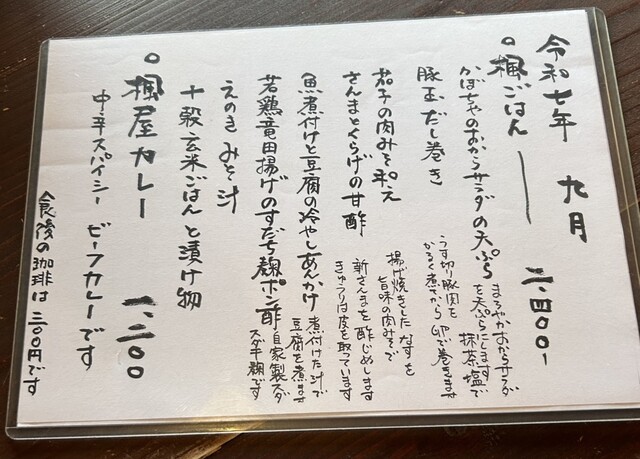 令和七年 九月
○楓ごはん ― 二、四〇〇、
かぼちゃのおからサラダの天ぷら
まろやかおからサラダ
を天ぷらにします
抹茶塩で
豚玉だし巻き
うす切り豚肉を
かるく煮てから卵で巻きます
茄子の肉みそ和え
揚げ焼きしたなすを
旨味の肉みそで
さんまとくらげの甘酢
新さんまを酢じめします
きゅうりは皮を取っています
魚煮付けと豆腐の冷やしあんかけ
煮付けた汁で
豆腐を煮ます
若鶏竜田揚げのすだち麹ポン酢
自家製スダ
スダチ麹です
えのきみそ汁
十穀玄米ごはんと漬け物
○楓屋カレー 一、二〇〇
中辛スパイシー ビーフカレーです
食後の珈琲は三〇〇円です